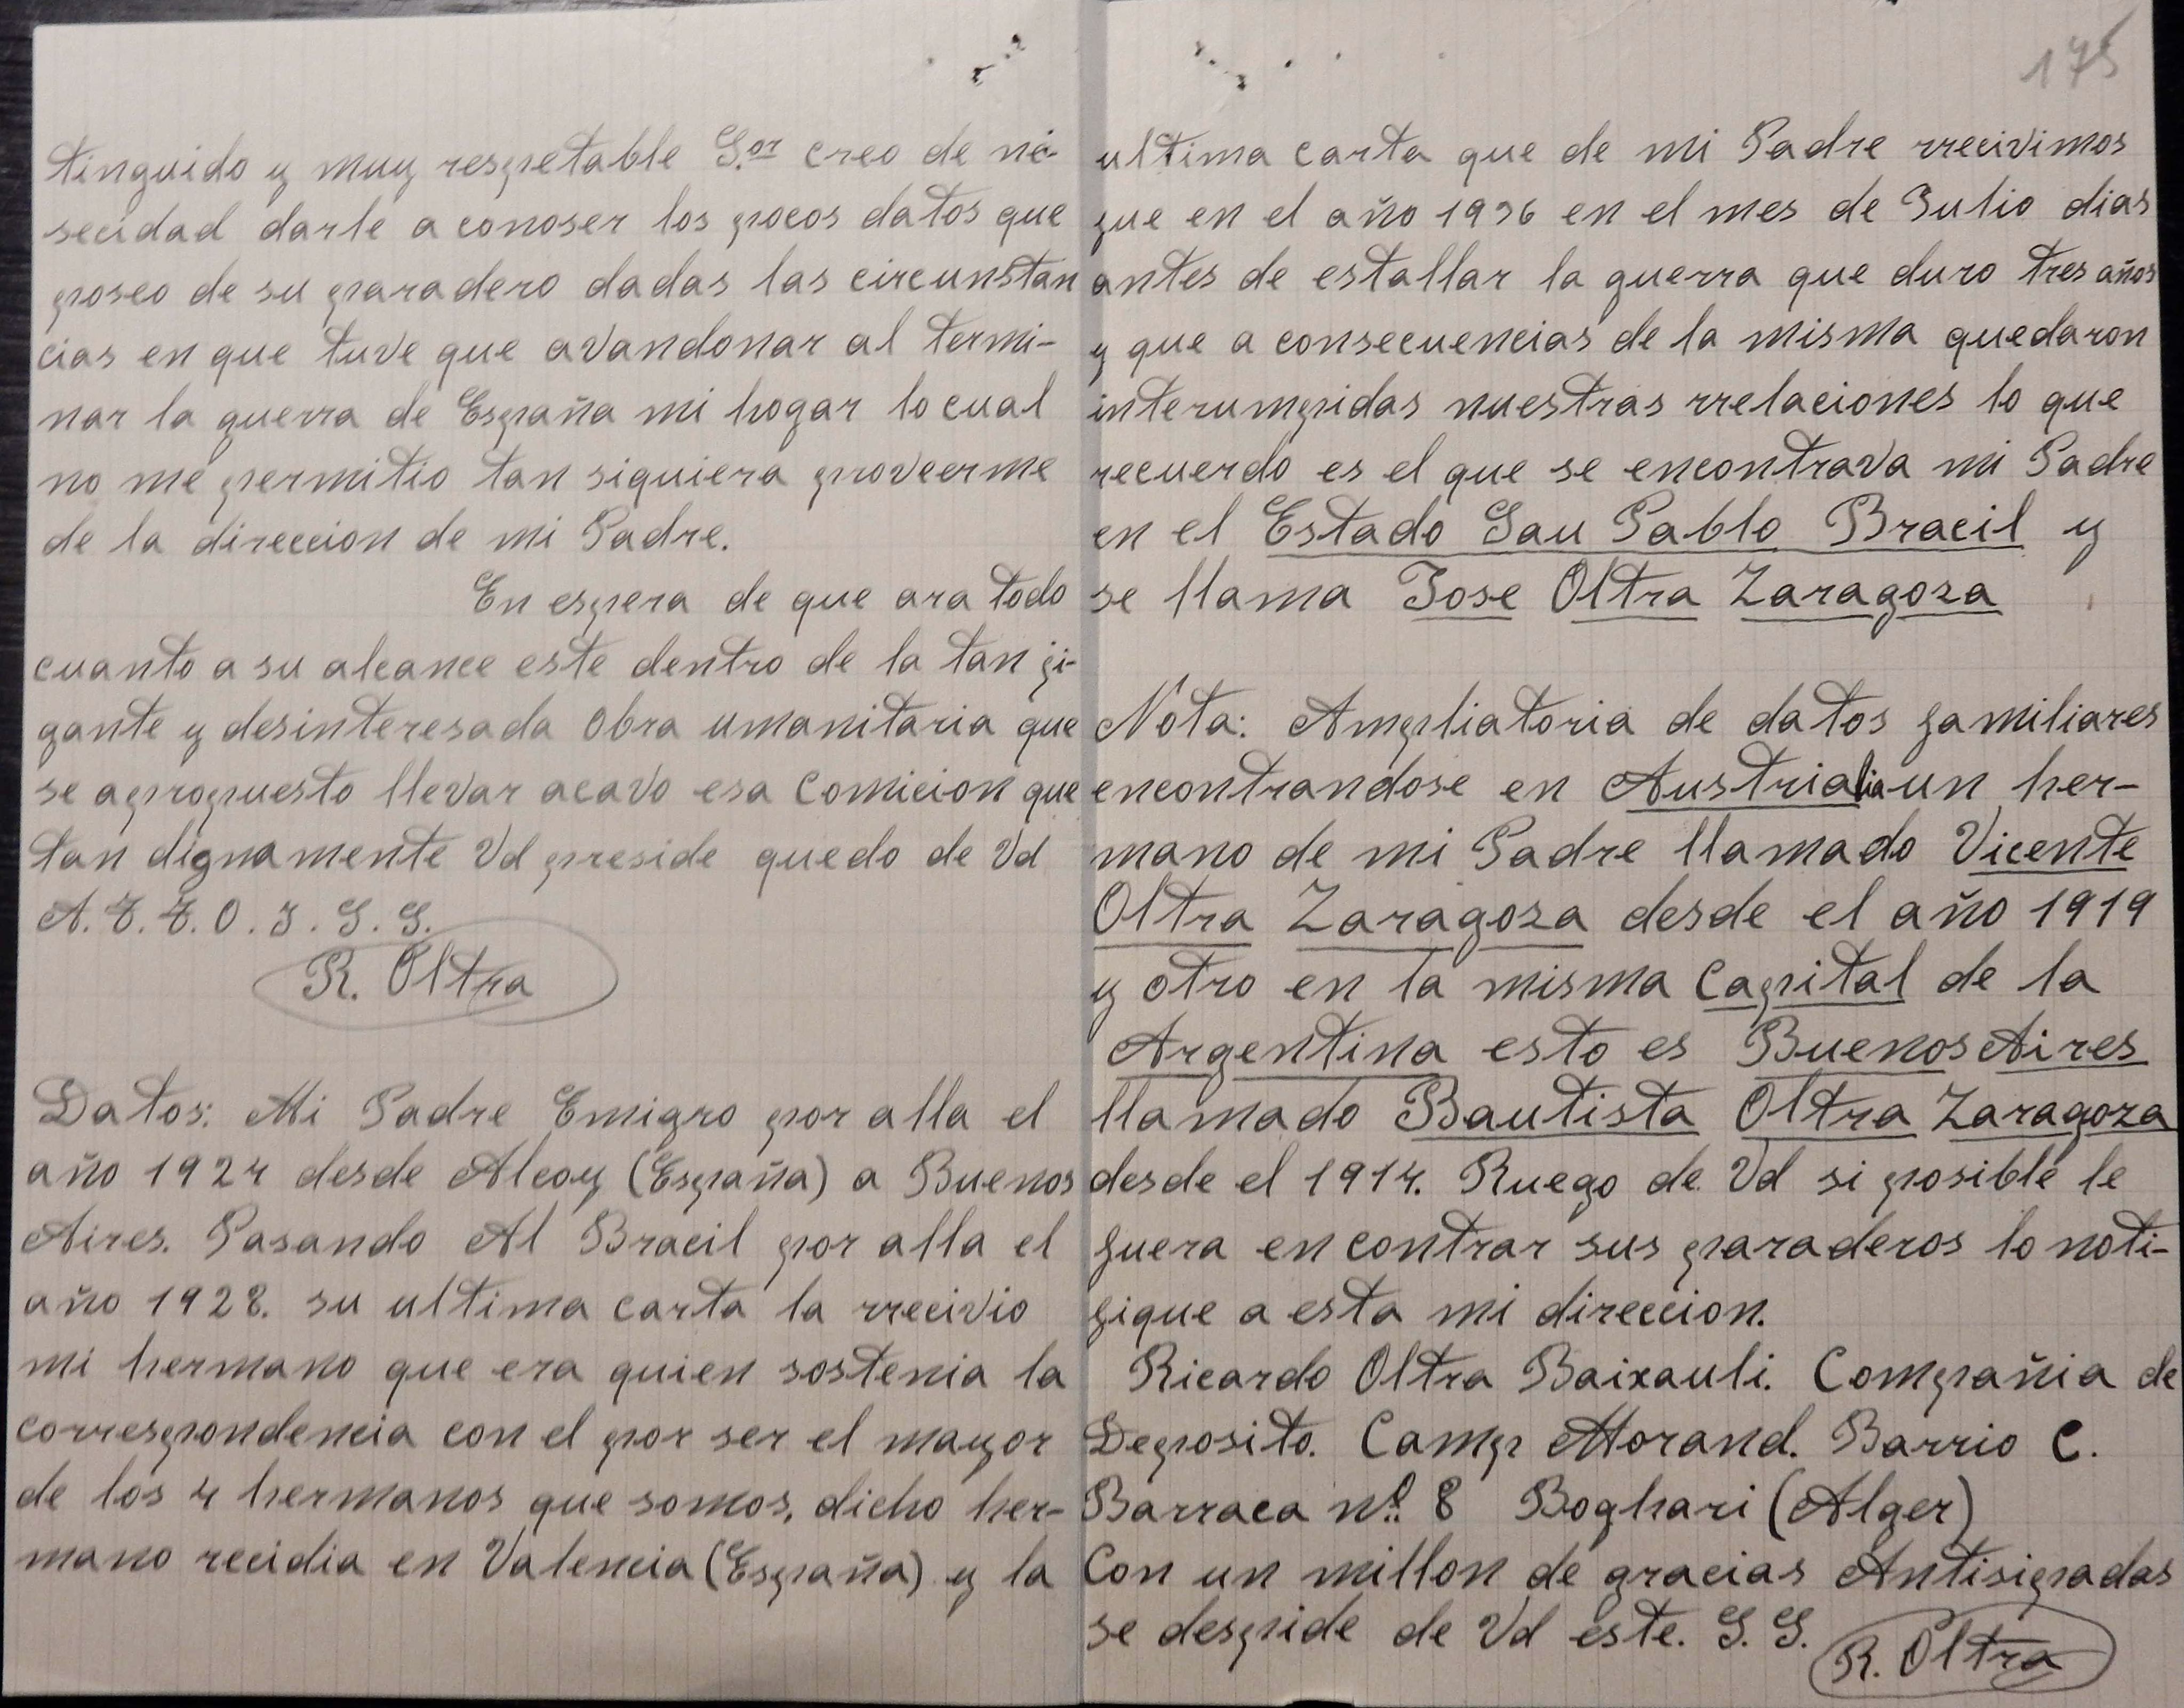 tinguido y muy respetable S.or creo de ne-
secidad darle a conoser los pocos datos que
poseo de su paradero dadas las circunstan
cias en que tuve que avandonar al termi-
nar la guerra de España mi hogar lo cual
no me permitio tan siquiera proveerme
de la direccion de mi Padre.
En espera de que ara todo
cuanto a su alcance este dentro de la tan ji-
gante y desinteresada Obra umanitaria que
se apropuesto llevar acavo esa Comicion que
tan dignamente Vd preside quedo de Vd
A.T.T.O.J.S.S.
R. Oltra
Datos: Mi Padre Emigro por alla el
año 1924 desde Alcoy (España) a Buenos
Aires. Pasando Al Bracil por alla el
año 1928. su ultima carta la rrecivio
mi hermano que era quien sostenia la
correspondencia con el por ser el mayor
de los 4 hermanos que somos, dicho her-
mano recidia en Valencia (España) y la
175
ultima carta que de mi Padre rrecivimos
fue en el año 1936 en el mes de Julio dias
antes de estallar la guerra que duro tres años
y que a consecuencias de la misma quedaron
interumpidas nuestras rrelaciones lo que
recuerdo es el que se encontrava mi Padre
en el Estado Sau Pablo Bracil y
se llama Jose Oltra Zaragoza
Nota: Ampliatoria de datos familiares
encontrandose en Australia un her-
mano de mi Padre llamado Vicente
Oltra Zaragoza desde el año 1919
y otro en la misma Capital de la
Argentina esto es Buenos Aires
llamado Bautista Oltra Zaragoza
desde el 1914. Ruego de Vd si posible le
fuera encontrar sus paraderos lo noti-
fique a esta mi direccion.
Ricardo Oltra Baixauli. Compañia de
Deposito. Camp Morand. Barrio C.
Barraca nº 8 Boghari (Alger)
Con un millon de gracias Antisipadas
se despide de Vd este. S.S.
R. Oltra